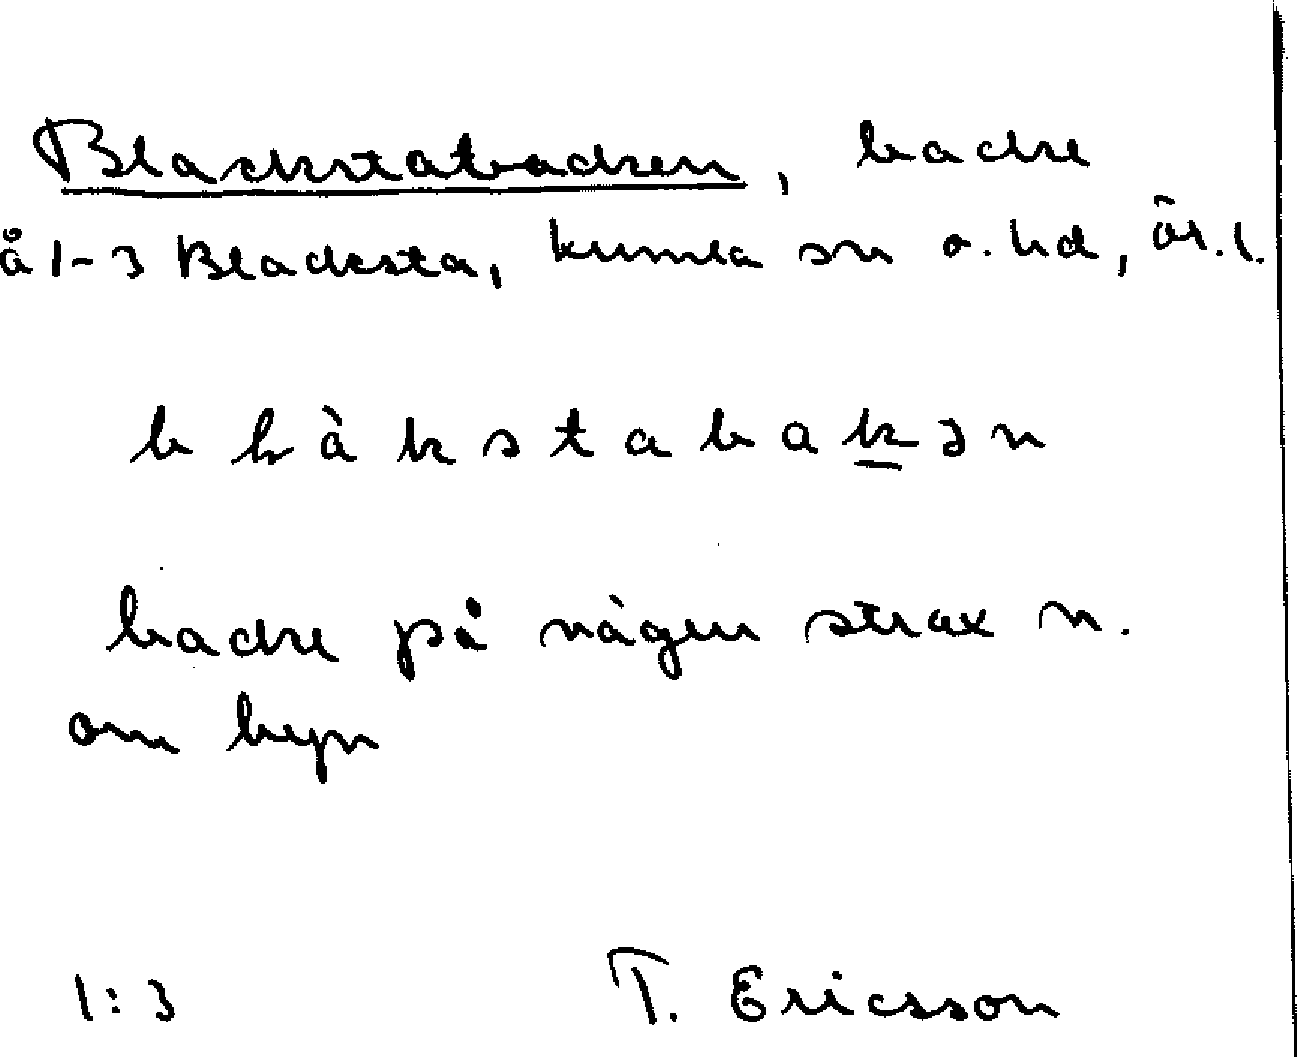 Blackstabacken, backe
å 1-3 Blacksta, Kumla sn o. hd, Ör. l.
b l à k s t a b a k ə n
backe på vägen strax n.
om byn
1:3 T. Ericsson